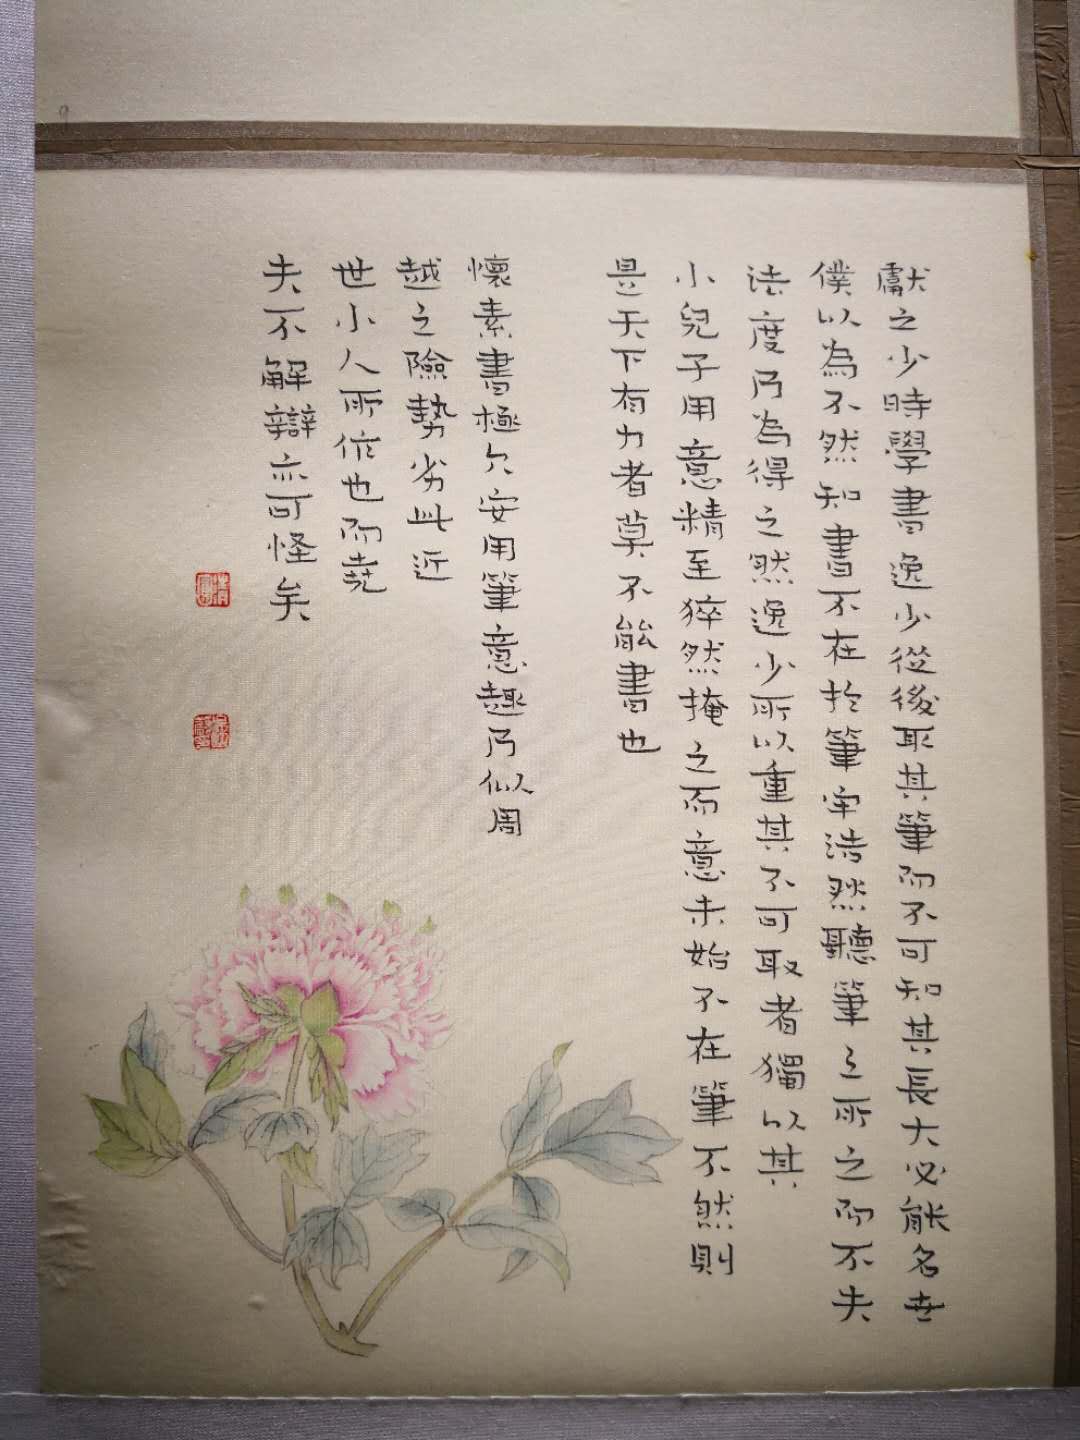 獻之少時學書逸少從後取其筆而不可知其長大必能名世
僕以為不然知書不在於筆牢浩然聽筆之所之而不失
法度乃為得之然逸少所以重其不可取者獨以其
小兒子用意精至猝然掩之而意未始不在筆不然則
是天下有力者莫不能書也
懷素書極欠安用筆意趣乃似周
越之險勢劣此近
世小人所作也而堯
夫不解辯亦可怪矣